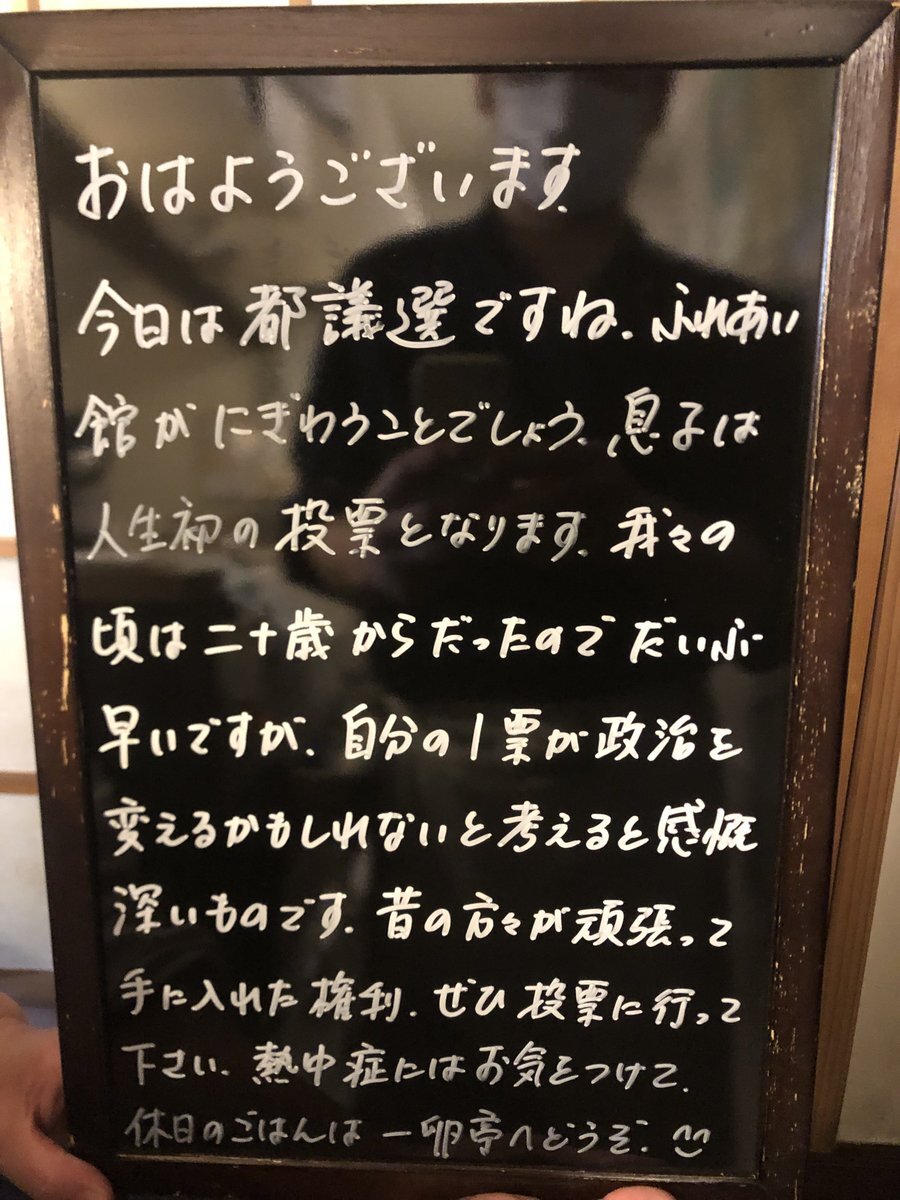 おはようございます.
今日は都議選ですね. ふれあい
館がにぎわうことでしょう. 息子は
人生初の投票となります. 我々の
頃は二十歳からだったのでだいぶ
早いですが. 自分の1票が政治を
変えるかもしれないと考えると感慨
深いものです. 昔の方々が頑張って
手に入れた権利. ぜひ投票に行って
下さい. 熱中症にはお気をつけて.
休日のごはんは一卵亭へどうぞ.